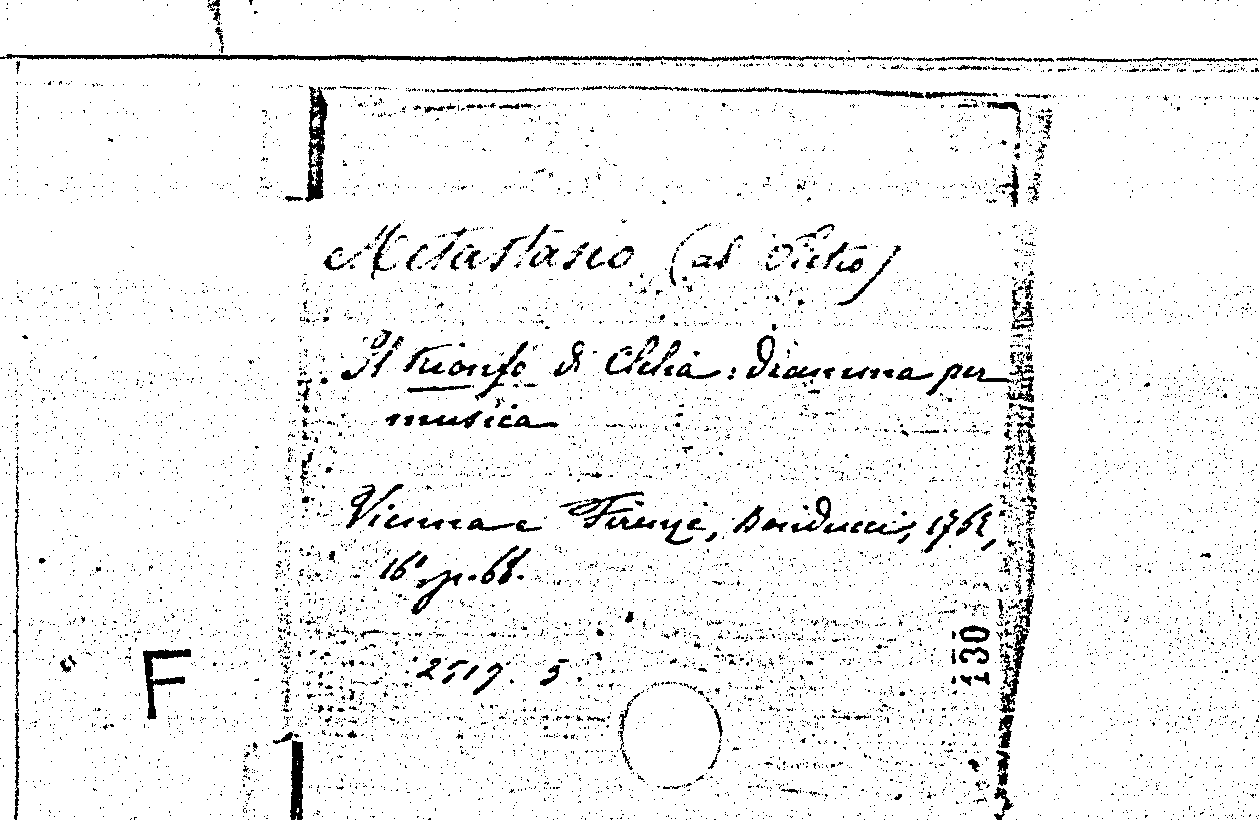 Metastasio (ab Pietro)
Il trionfo di Clelia : dramma per
musica
Vienna e Firenze, Bonducci, 1762,
16°, p. 68.
2519. 5.
130
F